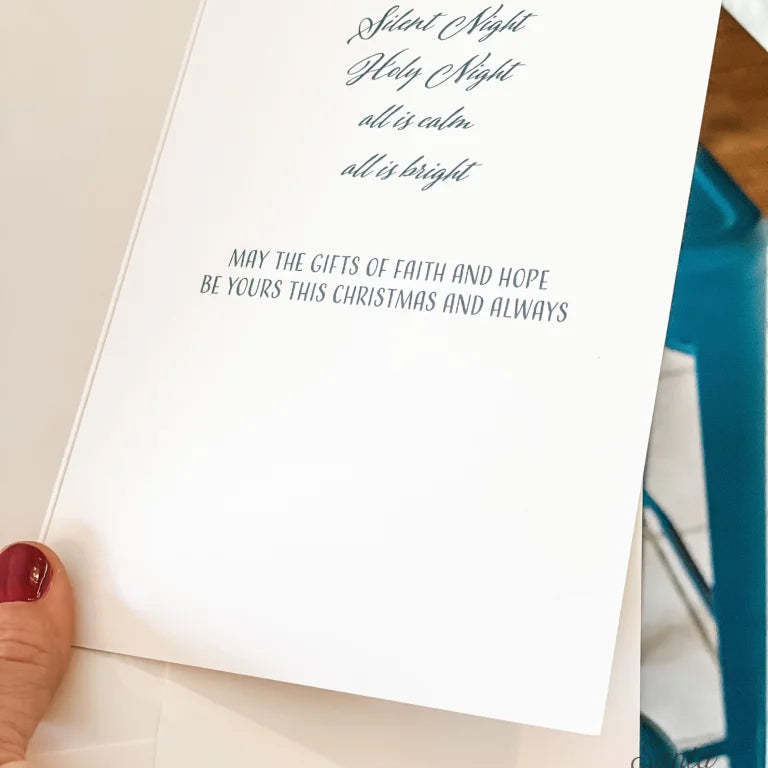 Silent Night
Holy Night
all is calm
all is bright
MAY THE GIFTS OF FAITH AND HOPE
BE YOURS THIS CHRISTMAS AND ALWAYS